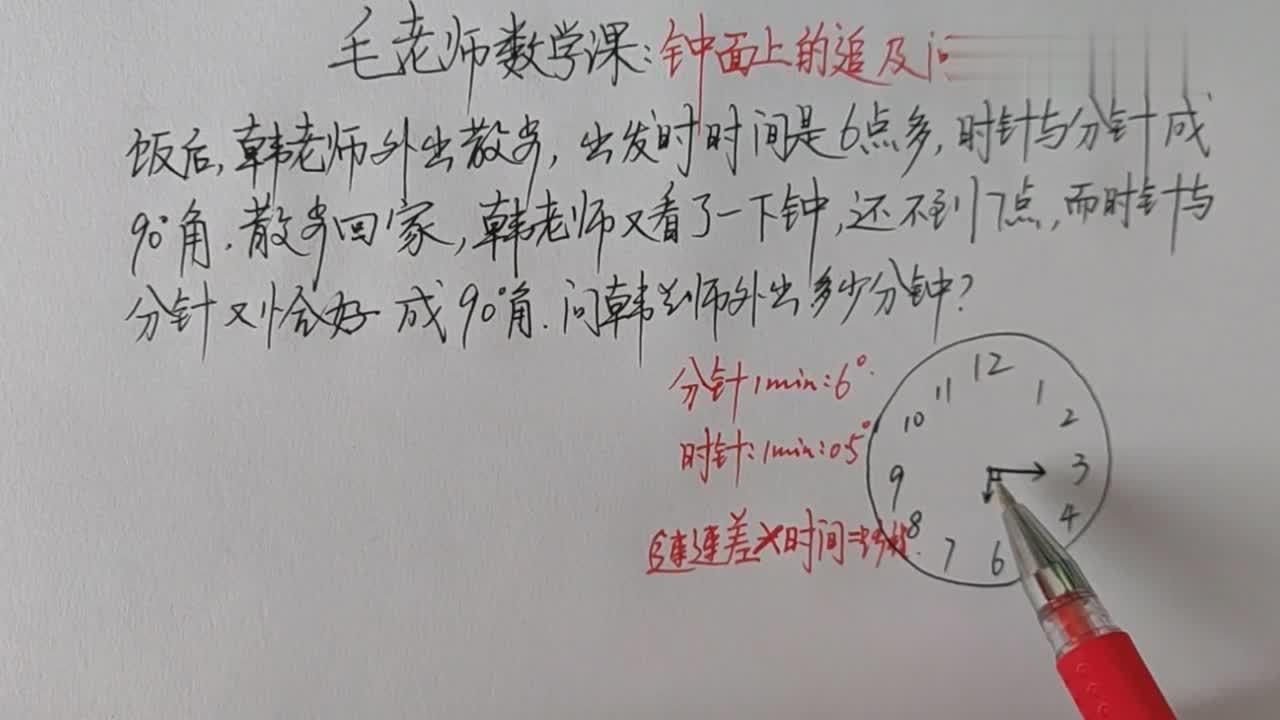 毛老师数学课:钟面上的追及问
饭后,韩老师外出散步,出发时时间是6点多,时针与分针成
90°角.散步回家,韩老师又看了一下钟,还不到7点,而时针与
分针又恰好成90°角.问韩老师外出多少分钟?
分针1min:6°.
时针:1min:0.5°
速差×时间=
12
11
1
10
2
9
3
8
4
7
6